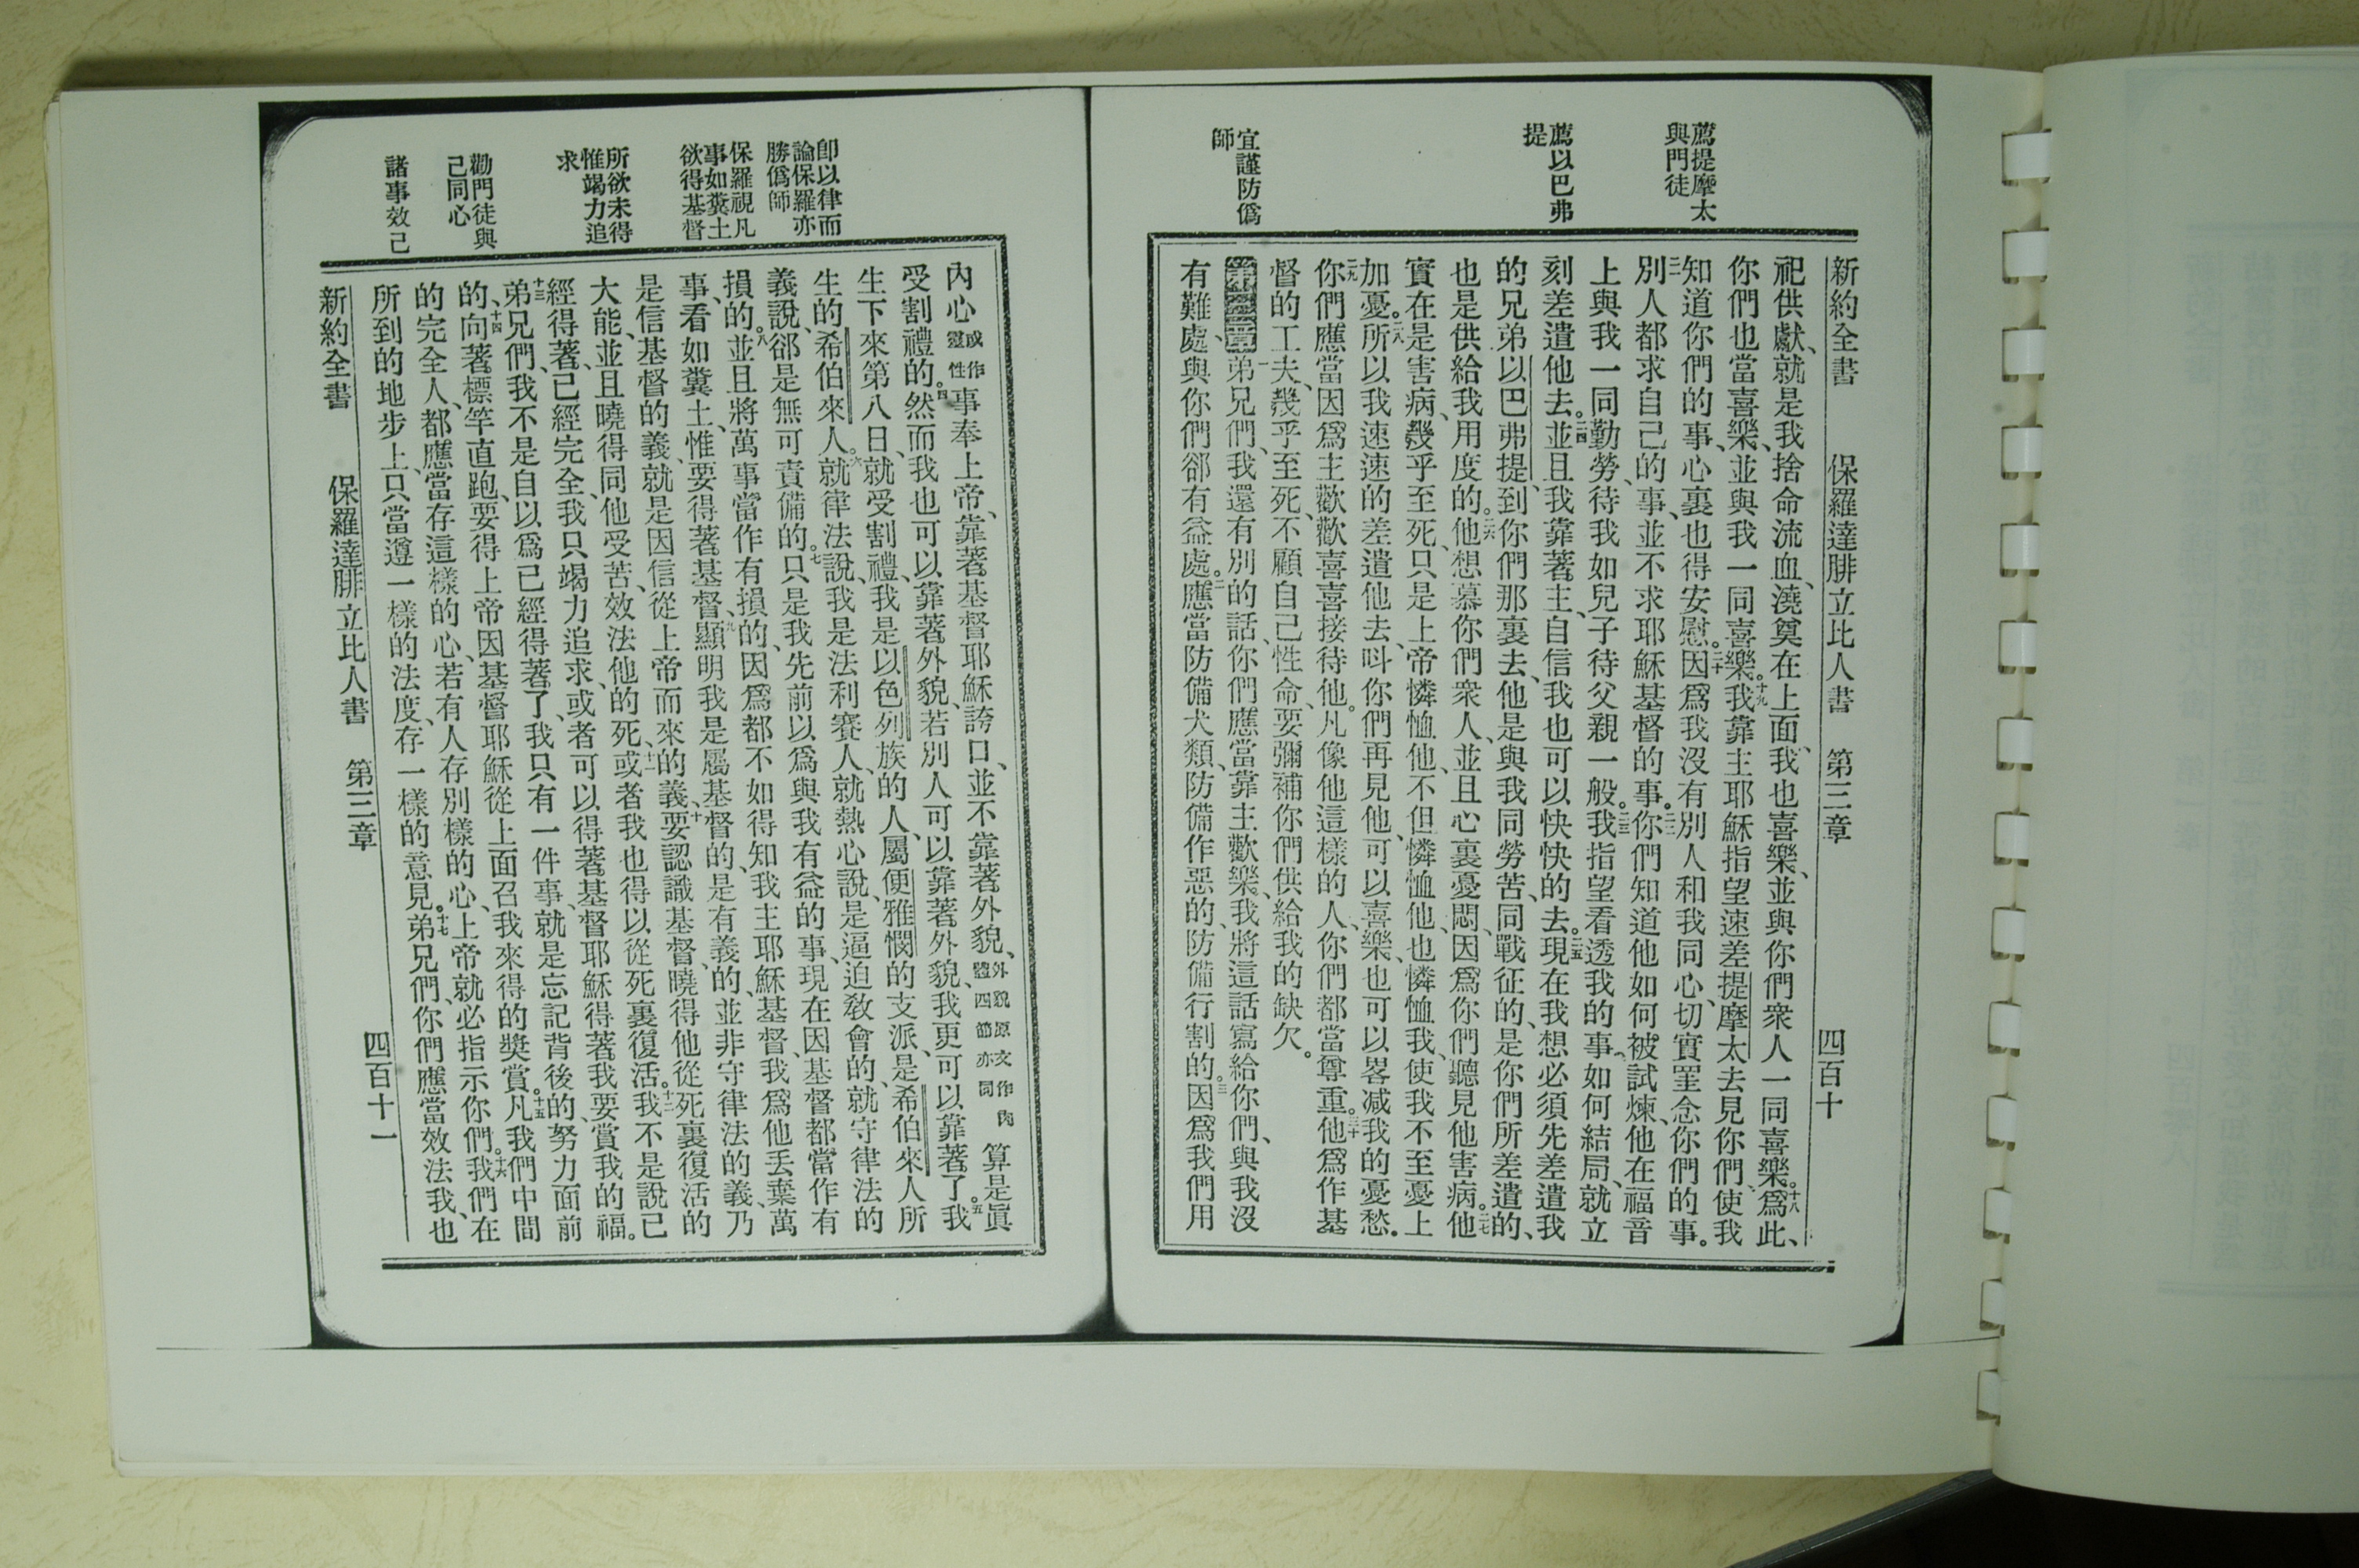 薦提摩太
與門徒
薦以巴弗
提
宜謹防僞
師
新約全書　保羅達腓立比人書　第三章　四百十
祀供獻、就是我捨命流血、澆奠在上面、我也喜樂、並與你們衆人一同喜樂。十八爲此、
你們也當喜樂、並與我一同喜樂。十九我靠主耶穌指望速差提摩太去見你們、使我
知道你們的事、心裏也得安慰。二十因爲我沒有別人和我同心、切實罣念你們的事。
二一別人都求自己的事、並不求耶穌基督的事。二二你們知道他如何被試煉、他在福音
上與我一同勤勞、待我如兒子待父親一般。二三我指望看透我的事、如何結局、就立
刻差遣他去。二四並且我靠著主、自信我也可以快快的去。二五現在我想必須先差遣我
的兄弟以巴弗提、到你們那裏去、他是與我同勞苦、同戰征的、是你們所差遣的、
也是供給我用度的。二六他想慕你們衆人、並且心裏憂悶、因爲你們聽見他害病。二七他
實在是害病、幾乎至死、只是上帝憐恤他、不但憐恤他、也憐恤我、使我不至憂上
加憂。二八所以我速速的差遣他去、呌你們再見他、可以喜樂、也可以畧减我的憂愁。
二九你們應當因爲主歡歡喜喜接待他。凡像他這樣的人、你們都當尊重。三十他爲作基
督的工夫、幾乎至死、不顧自己性命、要彌補你們供給我的缺欠。
第三章一弟兄們、我還有別的話、你們應當靠主歡樂、我將這話寫給你們、與我沒
有難處、與你們郤有益處。二應當防備犬類、防備作惡的、防備行割的。三因爲我們用
卽以律而
論保羅亦
勝僞師
保羅視凡
事如糞土
欲得基督
所欲未得
惟竭力追
求
勸門徒與
己同心
諸事效己
內心或作靈性事奉上帝、靠著基督耶穌誇口、並不靠著外貌、外貌原文作肉體四節亦同算是眞
受割禮的。四然而我也可以靠著外貌、若別人可以靠著外貌、我更可以靠著了。五我
生下來第八日、就受割禮、我是以色列族的人、屬便雅憫的支派、是希伯來人所
生的希伯來人。六就律法說、我是法利賽人、就熱心說、是逼迫敎會的、就守律法的
義說、郤是無可責備的。七只是我先前以爲與我有益的事、現在因基督都當作有
損的。八並且將萬事當作有損的、因爲都不如得知我主耶穌基督、我爲他丟棄萬
事、看如糞土、惟要得著基督、九顯明我是屬基督的、是有義的、並非守律法的義、乃
是信基督的義、就是因信從上帝而來的義、十要認識基督、曉得他從死裏復活的
大能、並且曉得同他受苦、效法他的死、十一或者我也得以從死裏復活。十二我不是說已
經得著、已經完全、我只竭力追求、或者可以得著基督耶穌得著我要賞我的福。
十三弟兄們、我不是自以爲已經得著了、我只有一件事、就是忘記背後的、努力面前
的、十四向著標竿直跑、要得上帝因基督耶穌從上面召我來得的獎賞。十五凡我們中間
的完全人、都應當存這樣的心、若有人存別樣的心、上帝就必指示你們。十六我們在
所到的地步上、只當遵一樣的法度、存一樣的意見。十七弟兄們、你們應當效法我、也
新約全書　保羅達腓立比人書　第三章　四百十一